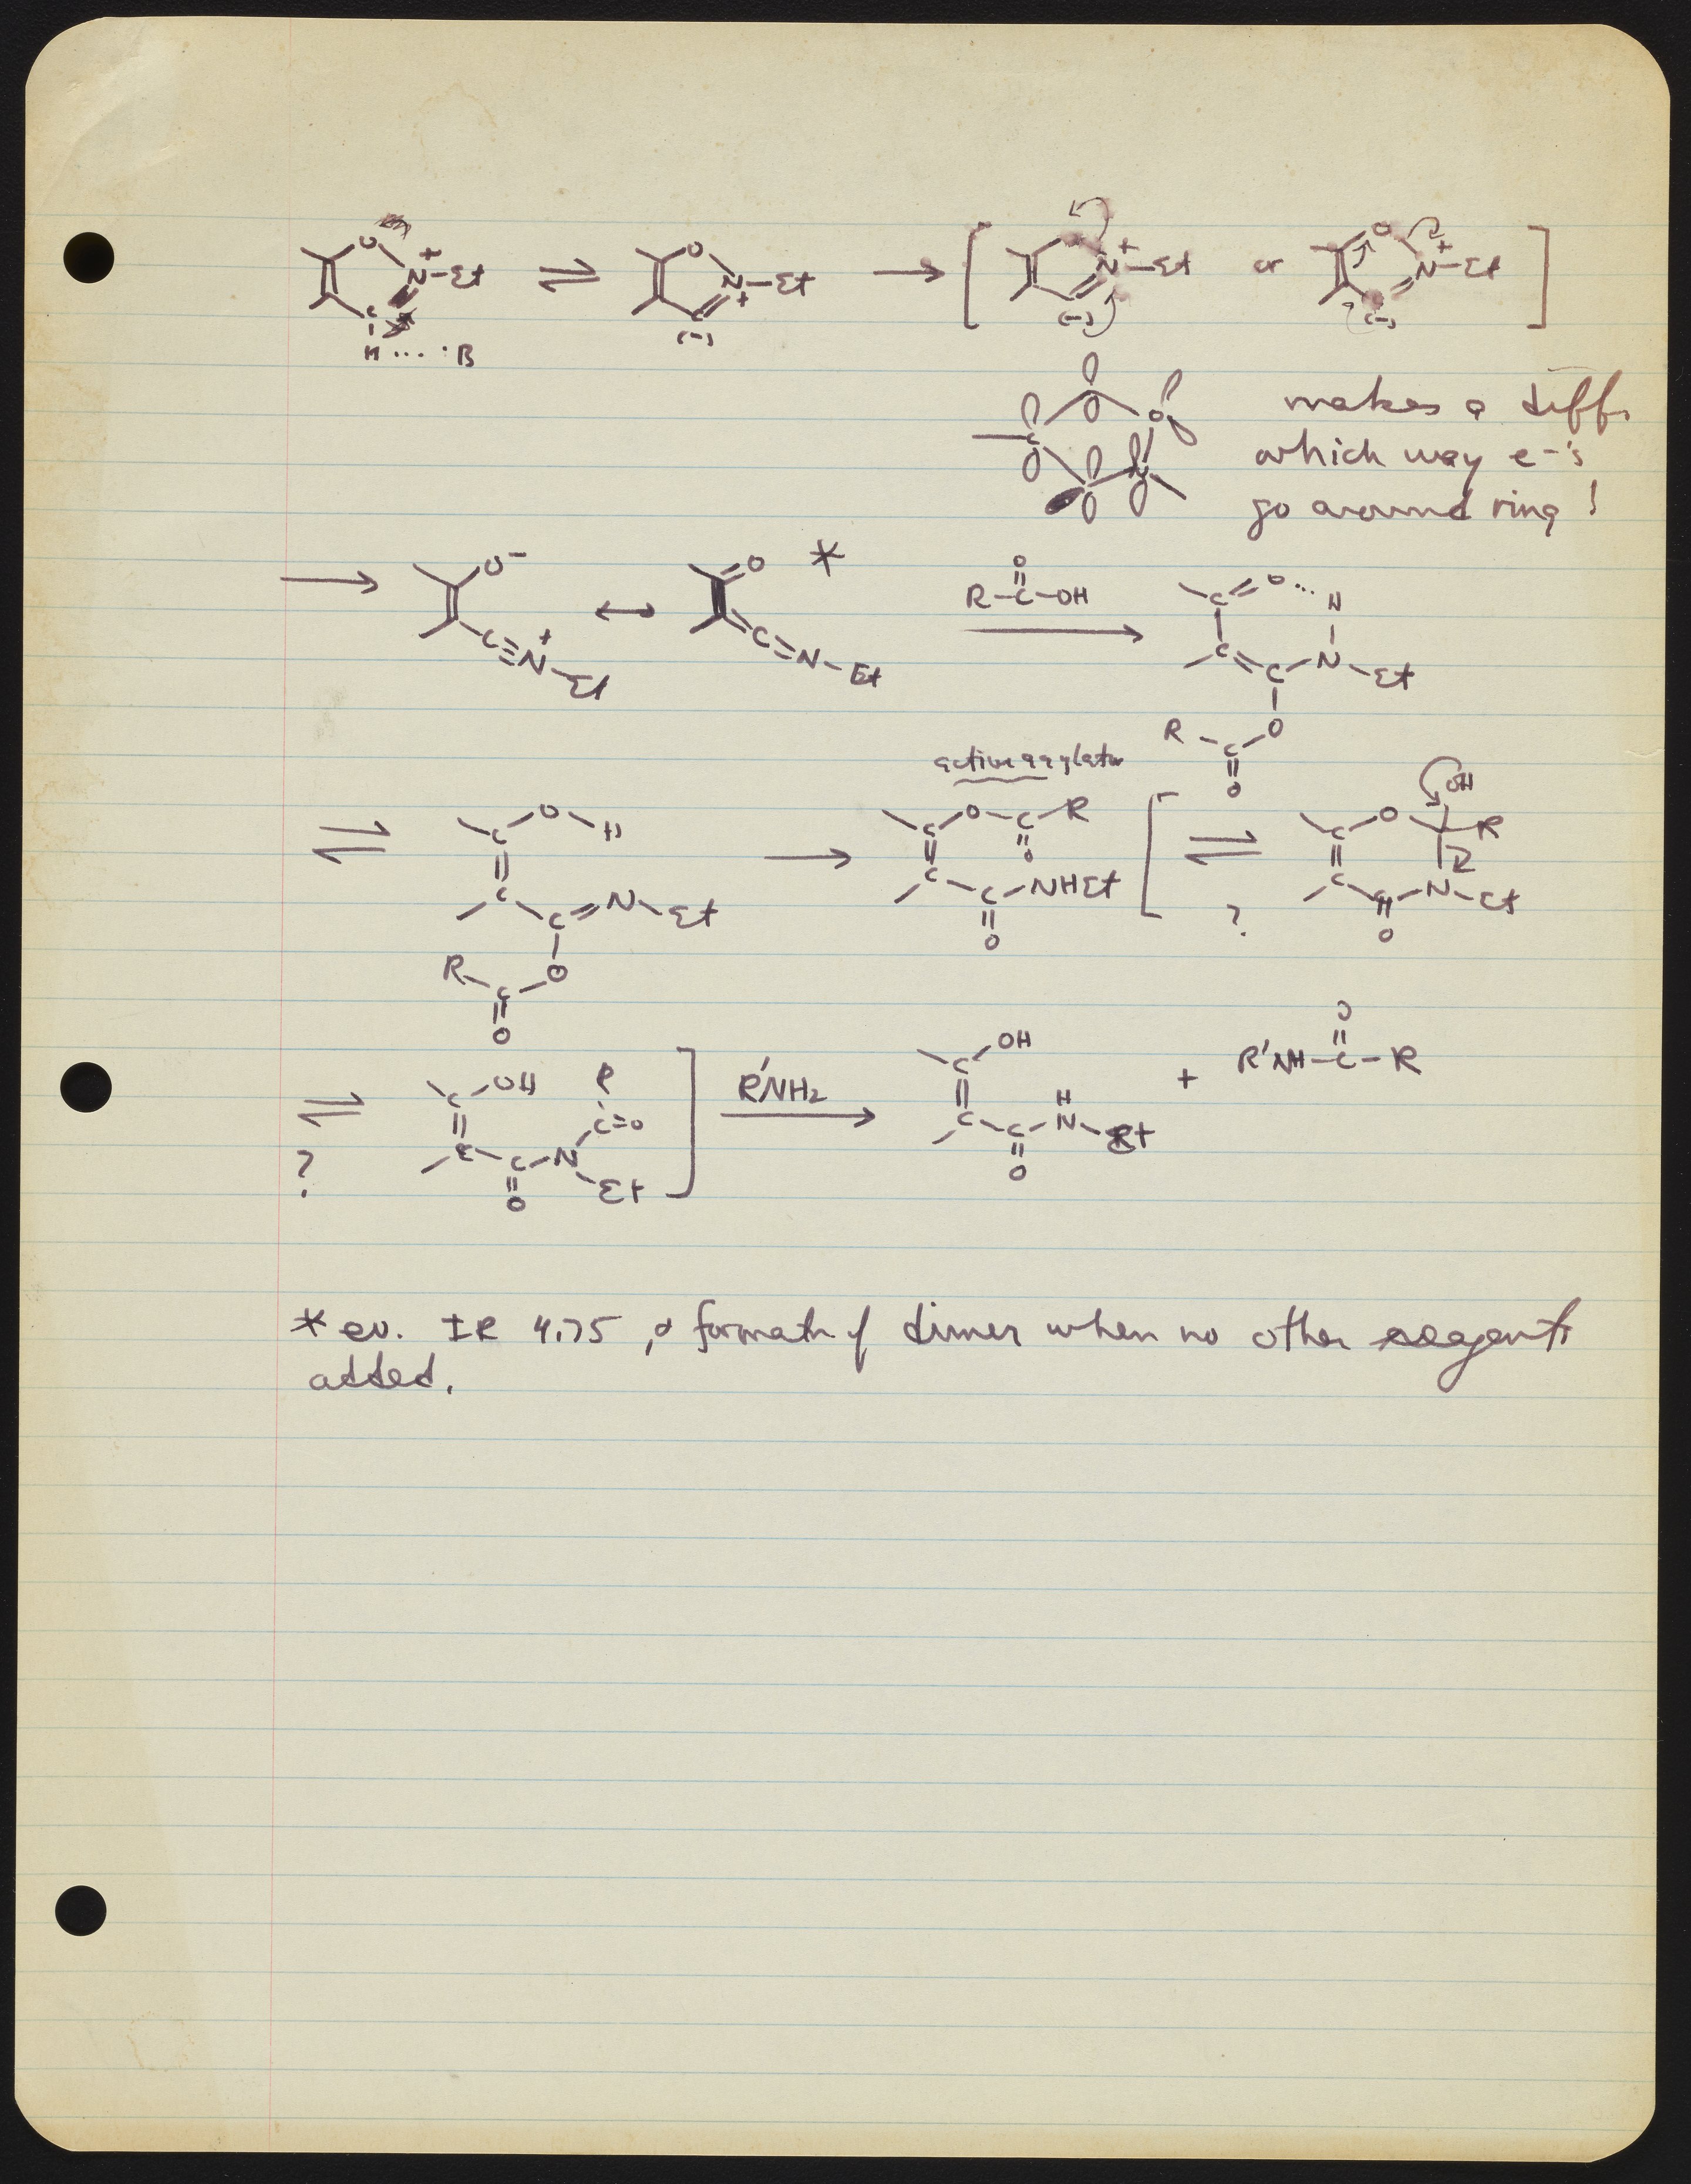 O N + Et ⇌ O N + Et → [ N + Et or O N + Et ]
C H ... :B (-) (-) (-)
makes a diff.
which way e-'s
go around ring!
→ O- C≡N + Et ↔ O C=N-Et * R-C-OH O → C=O...H
C=C-N-Et
R-C-O
O
active acylator
⇌ C-O-H → C-O-C-R [ ⇌ C-O OH R
C C=N-Et C-C-NHEt ? C-C-N-Et
R-C-O O O
O
⇌ C-OH R C=O ] R'NH2 → C-OH + R'NH-C-R O
? C-C-N-Et C-C-N-Et H
O O
* ev. IR 4.75, & formatn of dimer when no other reagents
added.